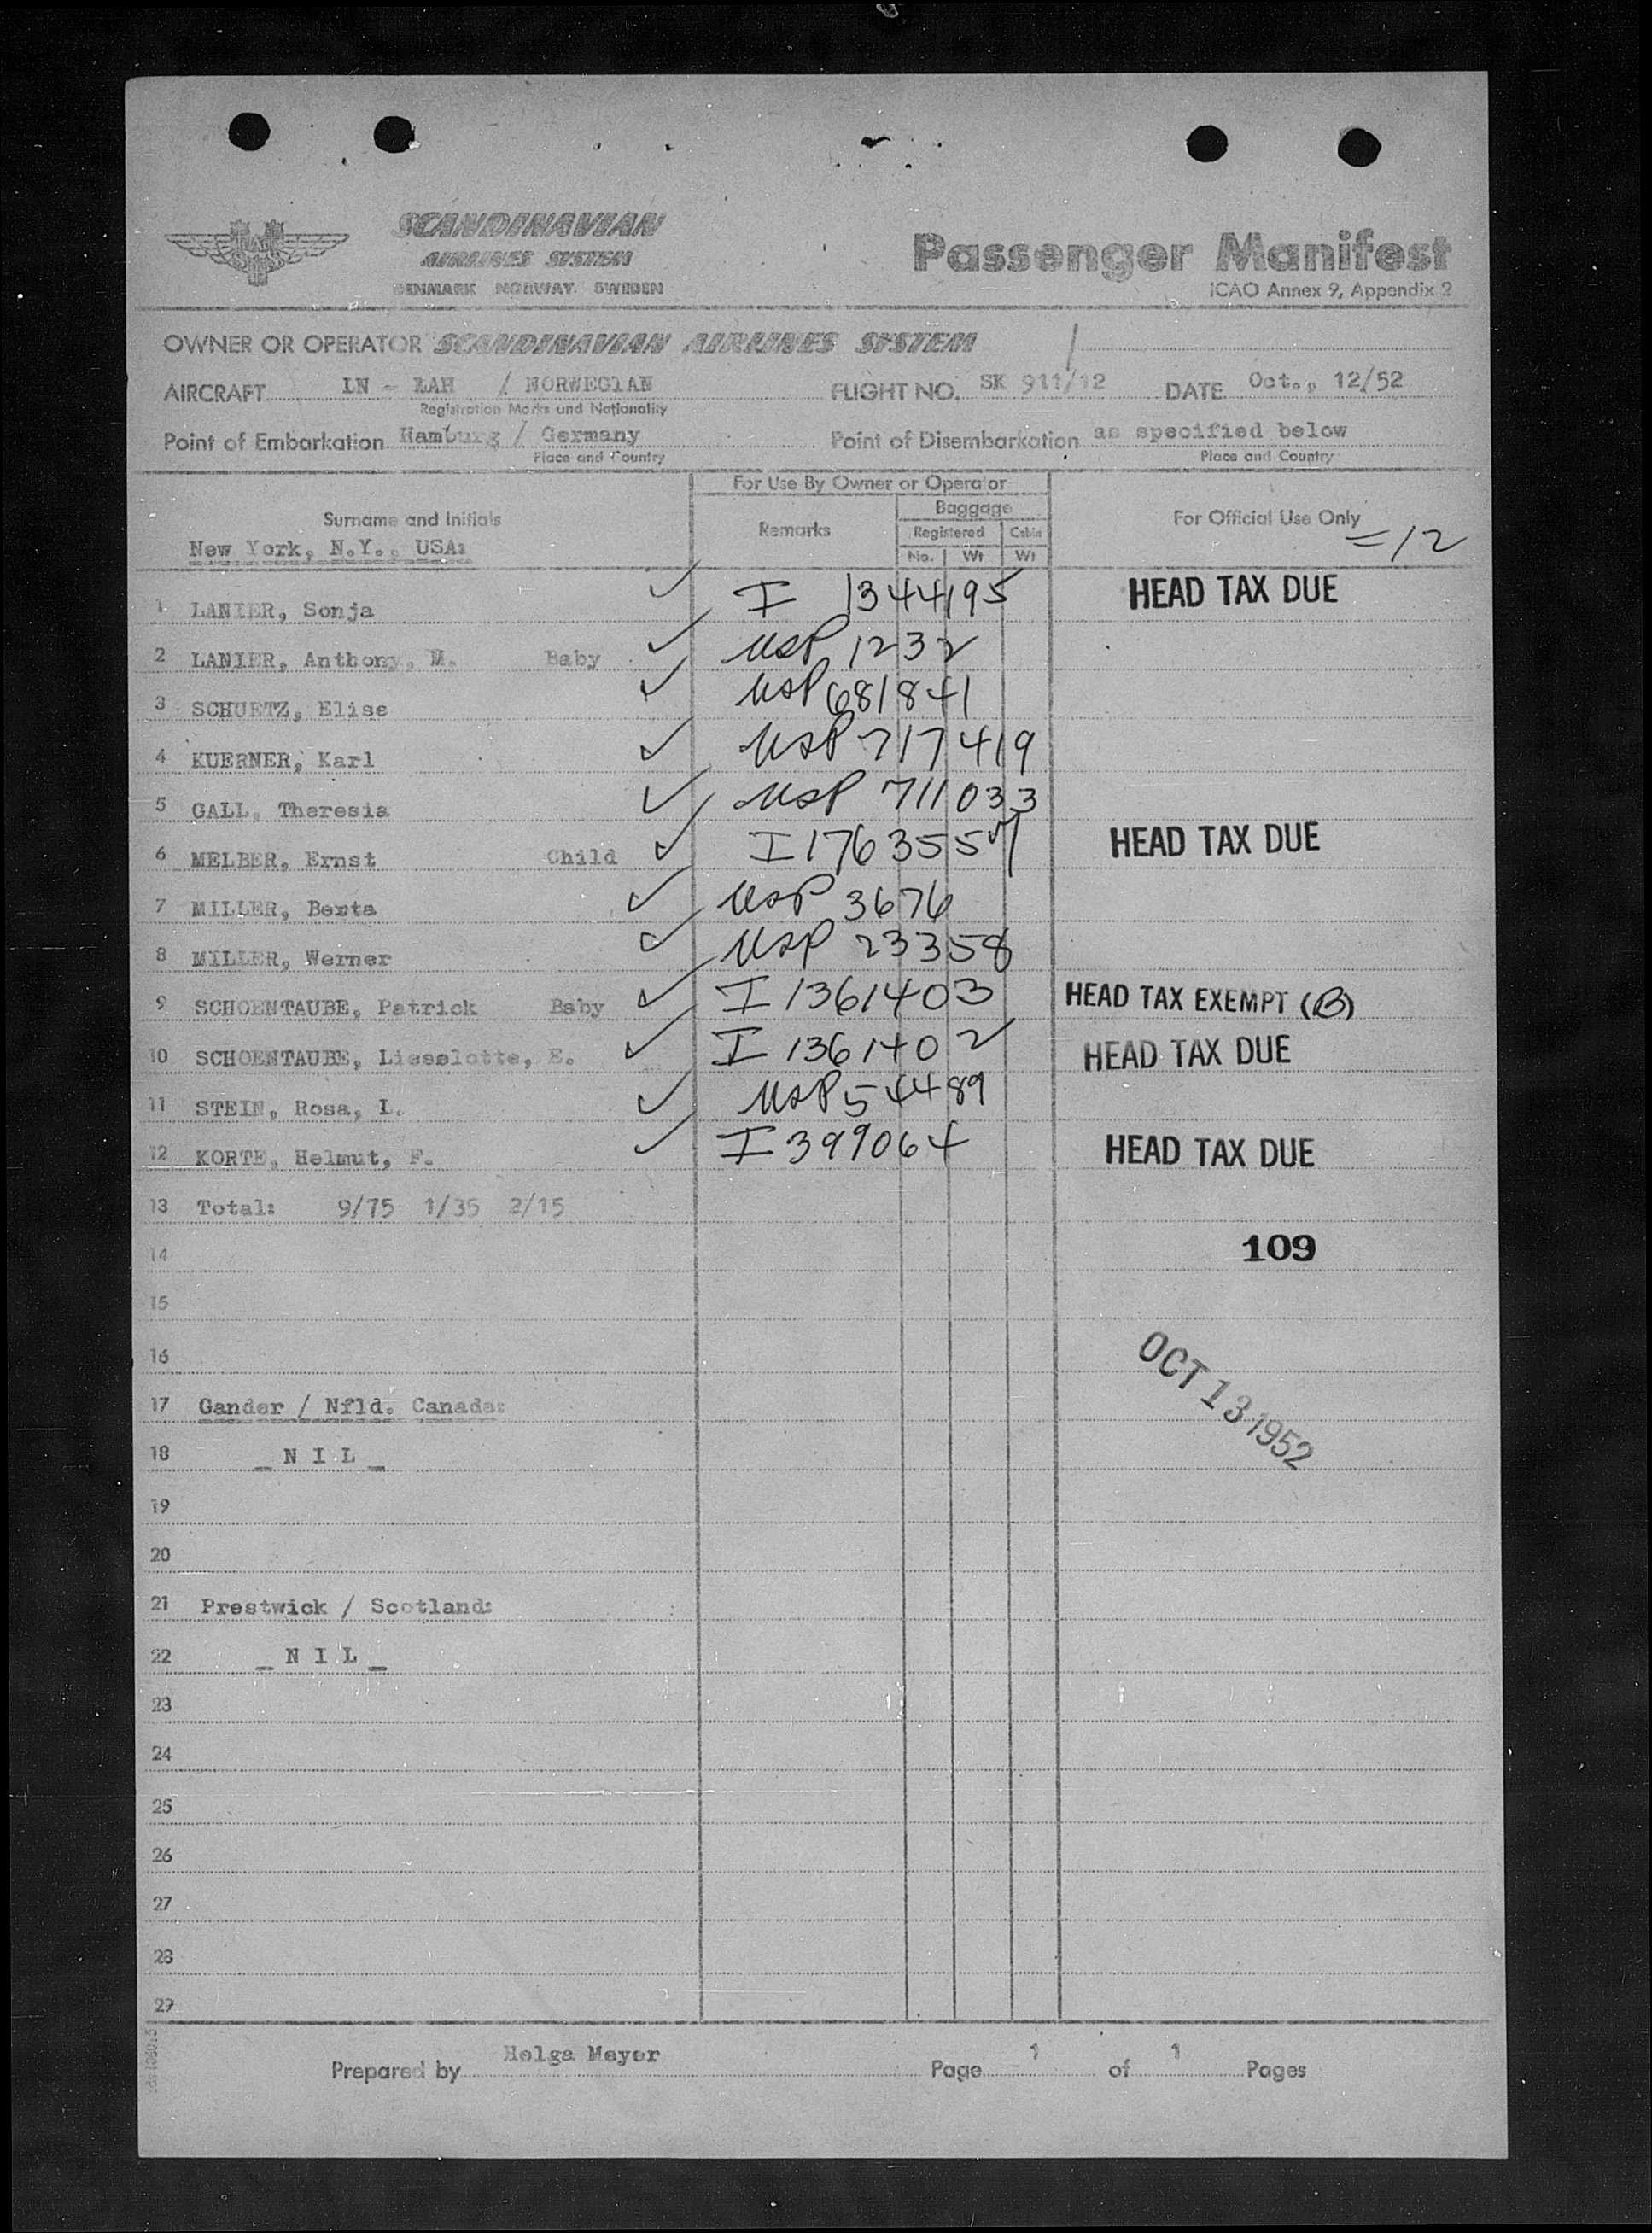 SCANDINAVIAN
AIRLINES SYSTEM
DENMARK NORWAY SWEDEN
Passenger Manifest
ICAO Annex 9, Appendix 2
OWNER OR OPERATOR SCANDINAVIAN AIRLINES SYSTEM
AIRCRAFT LN - LAH / NORWEGIAN FLIGHT NO. SK 911/12 DATE Oct., 12/52
Registration Marks und Nationality
Point of Embarkation Hamburg / Germany Point of Disembarkation as specified below
Place and Country Place and Country
For Use By Owner or Operator
Baggage
Surname and Initials Remarks Registered Cabin For Official Use Only
= 12
New York, N.Y., USA: No. Wt Wt
1 LANIER, Sonja ✓ I 1344195 HEAD TAX DUE
2 LANIER, Anthony, M. Baby ✓ USP 1232
3 SCHUETZ, Elise ✓ USP 681841
4 KUERNER, Karl ✓ USP 717419
5 GALL, Theresia ✓ USP 711033
6 MELBER, Ernst Child ✓ I 1763557 HEAD TAX DUE
7 MILLER, Berta ✓ USP 3676
8 MILLER, Werner ✓ USP 23358
9 SCHOENTAUBE, Patrick Baby ✓ I 1361403 HEAD TAX EXEMPT (B)
10 SCHOENTAUBE, Lieselotte, E. ✓ I 1361402 HEAD TAX DUE
11 STEIN, Rosa, L. ✓ USP 54489
12 KORTE, Helmut, F. ✓ I 399064 HEAD TAX DUE
13 Total: 9/75 1/35 2/15
14 109
15
16
OCT 13 1952
17 Gander / Nfld. Canada:
18 _ N I L _
19
20
21 Prestwick / Scotland:
22 _ N I L _
23
24
25
26
27
28
29
Prepared by Helga Meyer Page 1 of 1 Pages